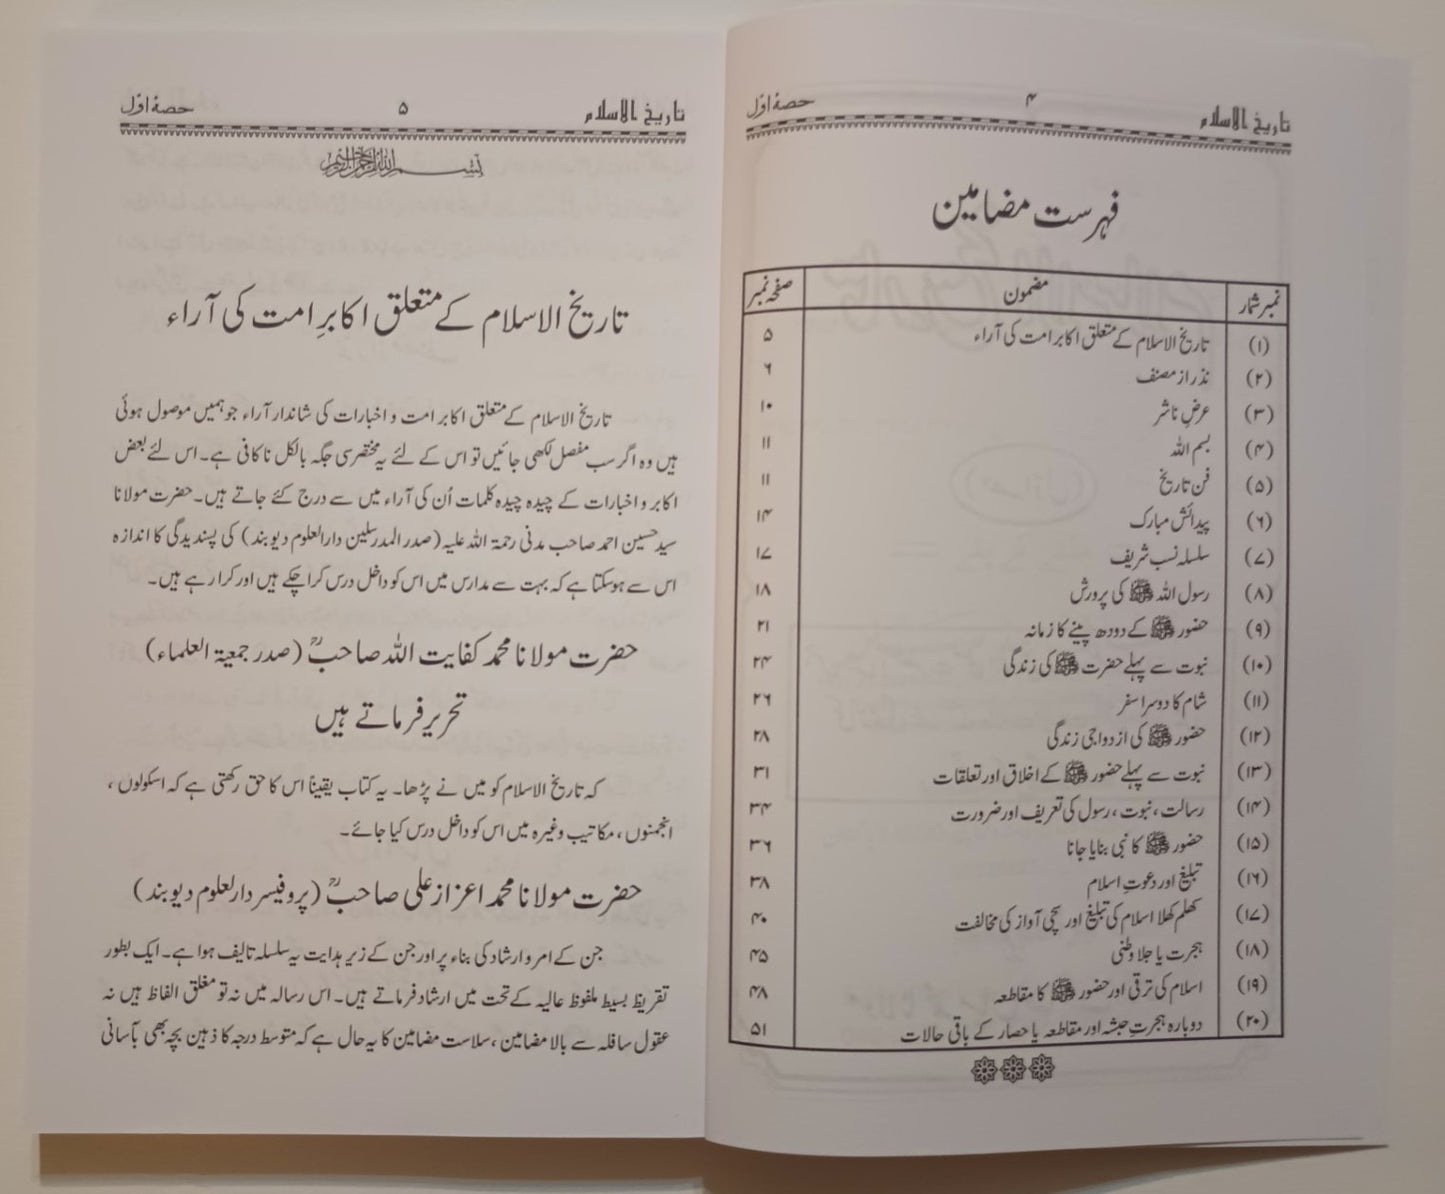 تاریخ الاسلام ۴ حصۂ اوّل
فہرست مضامین
نمبر شمار مضمون صفحہ نمبر
(۱) تاریخ الاسلام کے متعلق اکابر امت کی آراء ۵
(۲) نذر از مصنف ۶
(۳) عرضِ ناشر ۱۰
(۴) بسم اللہ ۱۱
(۵) فن تاریخ ۱۱
(۶) پیدائش مبارک ۱۴
(۷) سلسلہ نسب شریف ۱۷
(۸) رسول اللہ ﷺ کی پرورش ۱۸
(۹) حضور ﷺ کے دودھ پینے کا زمانہ ۲۱
(۱۰) نبوت سے پہلے حضرت ﷺ کی زندگی ۲۴
(۱۱) شام کا دوسرا سفر ۲۶
(۱۲) حضور ﷺ کی ازدواجی زندگی ۲۸
(۱۳) نبوت سے پہلے حضور ﷺ کے اخلاق اور تعلقات ۳۱
(۱۴) رسالت، نبوت، رسول کی تعریف اور ضرورت ۳۴
(۱۵) حضور ﷺ کا نبی بنایا جانا ۳۶
(۱۶) تبلیغ اور دعوتِ اسلام ۳۸
(۱۷) کھلم کھلا اسلام کی تبلیغ اور سچی آواز کی مخالفت ۴۰
(۱۸) ہجرت یا جلا وطنی ۴۵
(۱۹) اسلام کی ترقی اور حضور ﷺ کا مقاطعہ ۴۸
(۲۰) دوبارہ ہجرتِ حبشہ اور مقاطعہ یا حصار کے باقی حالات ۵۱
تاریخ الاسلام ۵ حصۂ اوّل
بسم اللہ الرحمن الرحیم
تاریخ الاسلام کے متعلق اکابرِ امت کی آراء
تاریخ الاسلام کے متعلق اکابر امت و اخبارات کی شاندار آراء جو ہمیں موصول ہوئی
ہیں وہ اگر سب مفصل لکھی جائیں تو اس کے لئے یہ مختصر سی جگہ بالکل ناکافی ہے۔ اس لئے بعض
اکابر و اخبارات کے چیدہ چیدہ کلمات اُن کی آراء میں سے درج کئے جاتے ہیں۔ حضرت مولانا
سید حسین احمد صاحب مدنی رحمۃ اللہ علیہ (صدر المدرسلین دارالعلوم دیوبند) کی پسندیدگی کا اندازہ
اس سے ہوسکتا ہے کہ بہت سے مدارس میں اس کو داخل درس کراچکے ہیں اور کرارہے ہیں۔
حضرت مولانا محمد کفایت اللہ صاحبؒ (صدر جمعیۃ العلماء)
تحریر فرماتے ہیں
کہ تاریخ الاسلام کو میں نے پڑھا۔ یہ کتاب یقیناً اس کا حق رکھتی ہے کہ اسکولوں،
انجمنوں، مکاتیب وغیرہ میں اس کو داخل درس کیا جائے۔
حضرت مولانا محمد اعزاز علی صاحبؒ (پروفیسر دارلعلوم دیوبند)
جن کے امر و ارشاد کی بناء پر اور جن کے زیرِ ہدایت یہ سلسلہ تالیف ہوا ہے۔ ایک بطور
تقریظ بسیط ملفوظ عالیہ کے تحت میں ارشاد فرماتے ہیں۔ اس رسالہ میں نہ تو مغلق الفاظ ہیں نہ
عقول سافلہ سے بالا مضامین، سلاست مضامین کا یہ حال ہے کہ متوسط درجہ کا ذہین بچہ بھی بآسانی